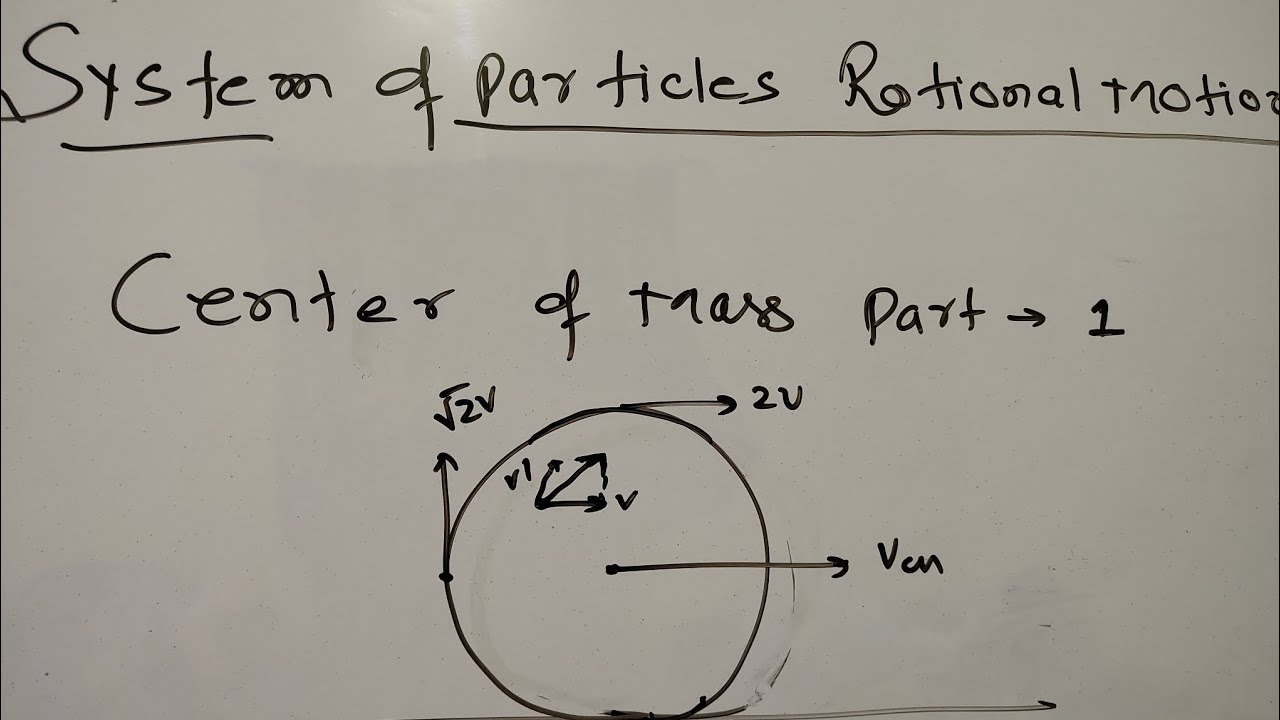 System of particles Rotional motion
Center of mass Part → 1
√2V
2V
V'
V
Vcm